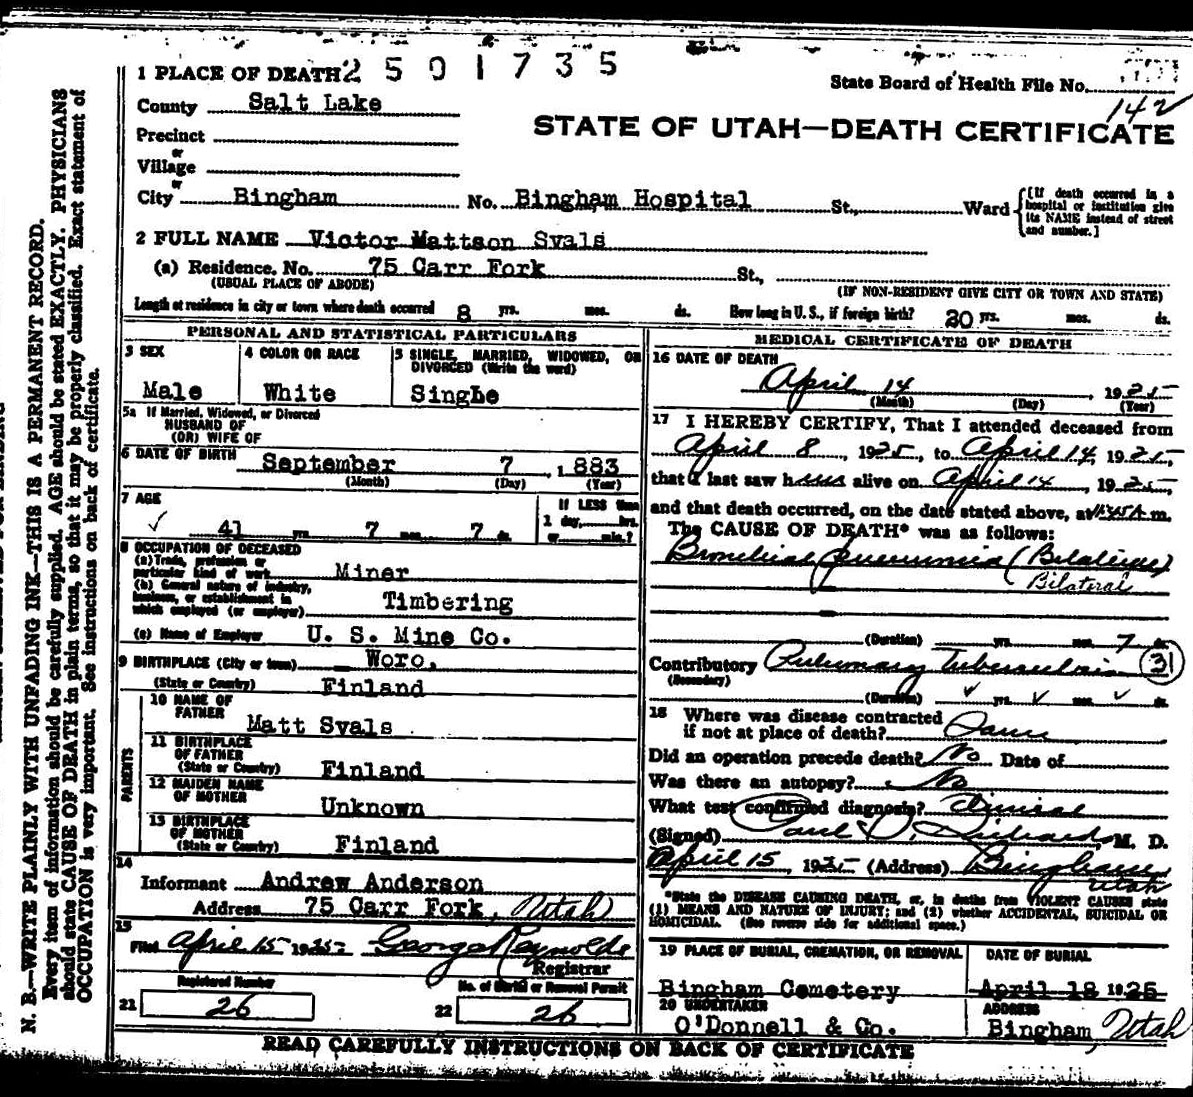 1 PLACE OF DEATH 2501735
State Board of Health File No.
142
County Salt Lake
STATE OF UTAH—DEATH CERTIFICATE
Precinct
or
Village
or
City Bingham No. Bingham Hospital St., Ward
{[If death occurred in a
hospital or institution give
its NAME instead of street
and number.]
2 FULL NAME Victor Mattson Svals
(a) Residence. No. 75 Carr Fork St.,
(USUAL PLACE OF ABODE) (IF NON-RESIDENT GIVE CITY OR TOWN AND STATE)
Length of residence in city or town where death occurred 8 yrs. mos. ds. How long in U. S., if foreign birth? 20 yrs. mos. ds.
PERSONAL AND STATISTICAL PARTICULARS
3 SEX
Male
4 COLOR OR RACE
White
5 SINGLE, MARRIED, WIDOWED, OR
DIVORCED (Write the word)
Singbe
5a If Married, Widowed, or Divorced
HUSBAND OF
(OR) WIFE OF
6 DATE OF BIRTH September 7, 1883
(Month) (Day) (Year)
7 AGE
41 yrs. 7 mos. 7 ds.
If LESS than
1 day, hrs.
or min.?
8 OCCUPATION OF DECEASED
(a) Trade, profession or
particular kind of work Miner
(b) General nature of industry,
business, or establishment in
which employed (or employer) Timbering
(c) Name of Employer U. S. Mine Co.
9 BIRTHPLACE (City or town) Woro,
(State or Country) Finland
PARENTS
10 NAME OF
FATHER Matt Svals
11 BIRTHPLACE
OF FATHER
(State or Country) Finland
12 MAIDEN NAME
OF MOTHER Unknown
13 BIRTHPLACE
OF MOTHER
(State or Country) Finland
14
Informant Andrew Anderson
Address 75 Carr Fork, Utah
15
Filed April 15 1925 George Reynolds
Registrar
Registered Number
21 26
No. of Burial or Removal Permit
22 26
MEDICAL CERTIFICATE OF DEATH
16 DATE OF DEATH
April 14, 1925
(Month) (Day) (Year)
17 I HEREBY CERTIFY, That I attended deceased from
April 8, 1925, to April 14, 1925,
that I last saw h alive on April 14, 1925,
and that death occurred, on the date stated above, at 11:45 A m.
The CAUSE OF DEATH* was as follows:
Bronchial pneumonia (Bilateral)
Bilateral
(Duration) yrs. mos. 7 ds.
Contributory Pulmonary Tuberculosis 31
(Secondary)
(Duration) yrs. mos. ds.
18 Where was disease contracted
if not at place of death?
Did an operation precede death? No Date of
Was there an autopsy? No
What test confirmed diagnosis? Clinical
(Signed) Paul S. Richards, M. D.
April 15, 1925 (Address) Bingham
Utah
*State the DISEASE CAUSING DEATH, or, in deaths from VIOLENT CAUSES state
(1) MEANS AND NATURE OF INJURY; and (2) whether ACCIDENTAL, SUICIDAL OR
HOMICIDAL. (See reverse side for additional space.)
19 PLACE OF BURIAL, CREMATION, OR REMOVAL
Bingham Cemetery
DATE OF BURIAL
April 18 1925
20 UNDERTAKER
O'Donnell & Co.
ADDRESS
Bingham, Utah
READ CAREFULLY INSTRUCTIONS ON BACK OF CERTIFICATE
N. B.—WRITE PLAINLY WITH UNFADING INK—THIS IS A PERMANENT RECORD.
Every item of information should be carefully supplied. AGE should be stated EXACTLY. PHYSICIANS
should state CAUSE OF DEATH in plain terms, so that it may be properly classified. Exact statement of
OCCUPATION is very important. See instructions on back of certificate.